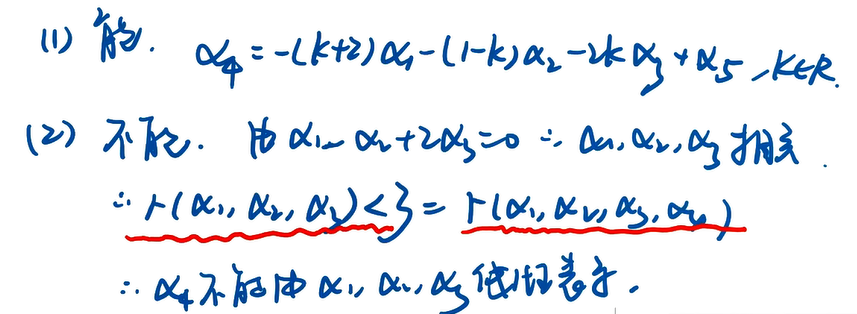 (1) 能. α₄=-(k+2)α₁-(1-k)α₂-2kα₃+α₅,k∈R.
(2) 不能. 由α₁-α₂+2α₃=0 ∴ α₁,α₂,α₃相关.
∴ r(α₁,α₂,α₃)<3=r(α₁,α₂,α₃,α₄)
∴ α₄不能由α₁,α₂,α₃线性表示.